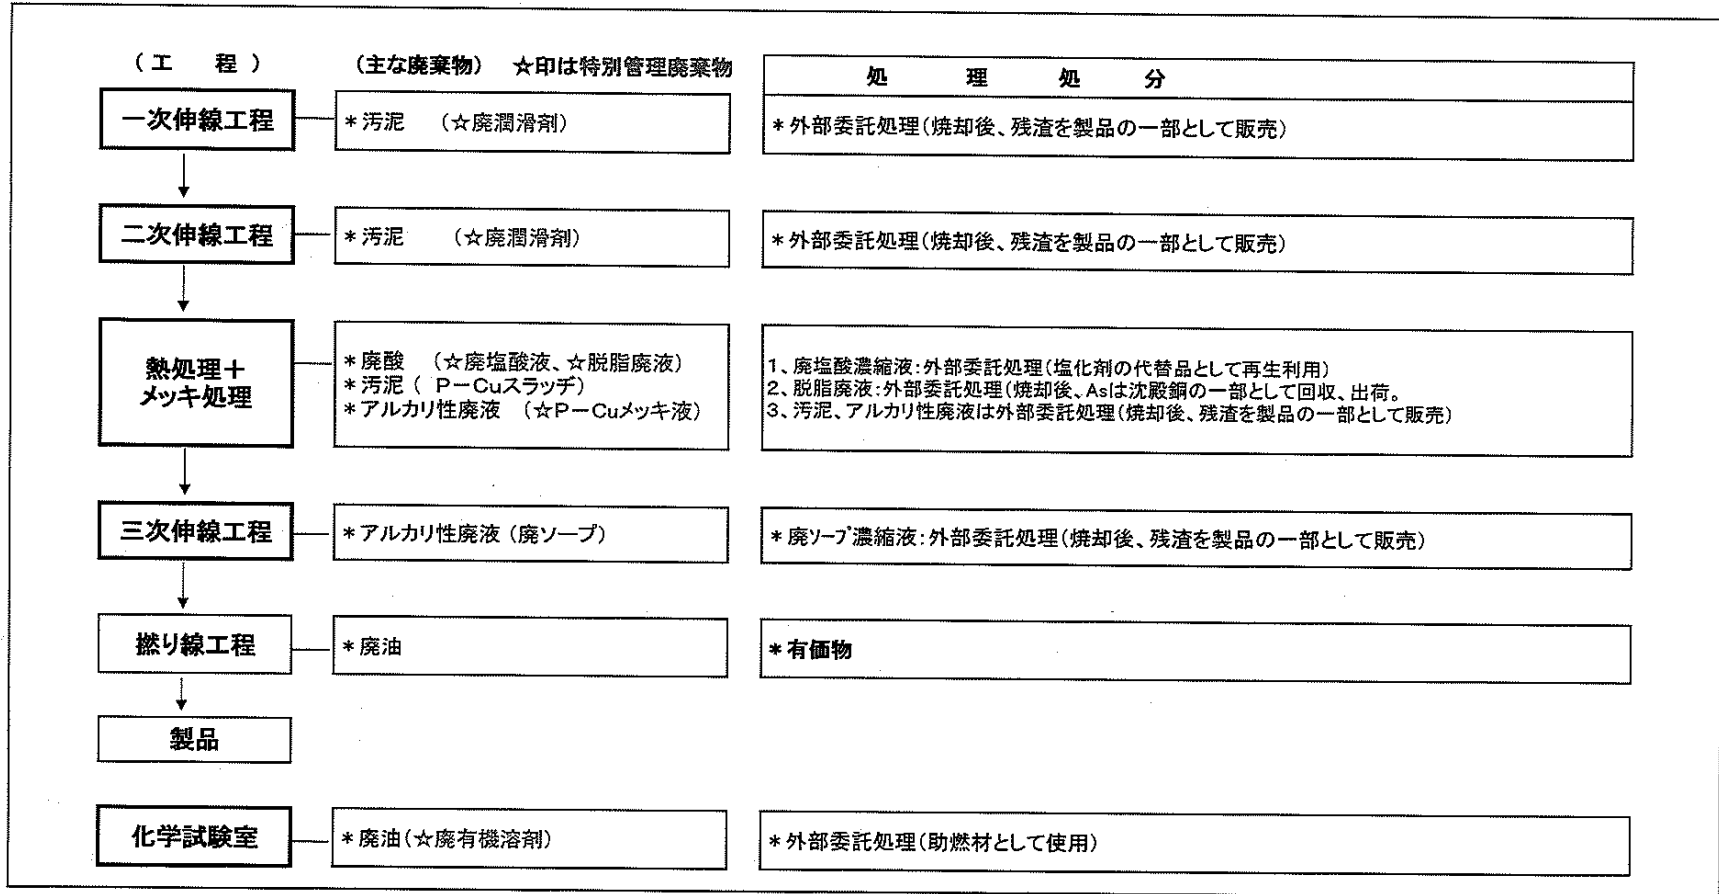 (工　程)　(主な廃棄物)　☆印は特別管理廃棄物
処　理　処　分
一次伸線工程
＊汚泥　(☆廃潤滑剤)
＊外部委託処理(焼却後、残渣を製品の一部として販売)
二次伸線工程
＊汚泥　(☆廃潤滑剤)
＊外部委託処理(焼却後、残渣を製品の一部として販売)
熱処理＋
メッキ処理
＊廃酸　(☆廃塩酸液、☆脱脂廃液)
＊汚泥 ( P－Cuスラッヂ)
＊アルカリ性廃液　(☆P－Cuメッキ液)
1、廃塩酸濃縮液:外部委託処理(塩化剤の代替品として再生利用)
2、脱脂廃液:外部委託処理(焼却後、Asは沈殿銅の一部として回収、出荷。
3、汚泥、アルカリ性廃液は外部委託処理(焼却後、残渣を製品の一部として販売)
三次伸線工程
＊アルカリ性廃液 (廃ソープ)
＊廃ｿｰﾌﾟ濃縮液:外部委託処理(焼却後、残渣を製品の一部として販売)
撚り線工程
＊廃油
＊有価物
製品
化学試験室
＊廃油(☆廃有機溶剤)
＊外部委託処理(助燃材として使用)